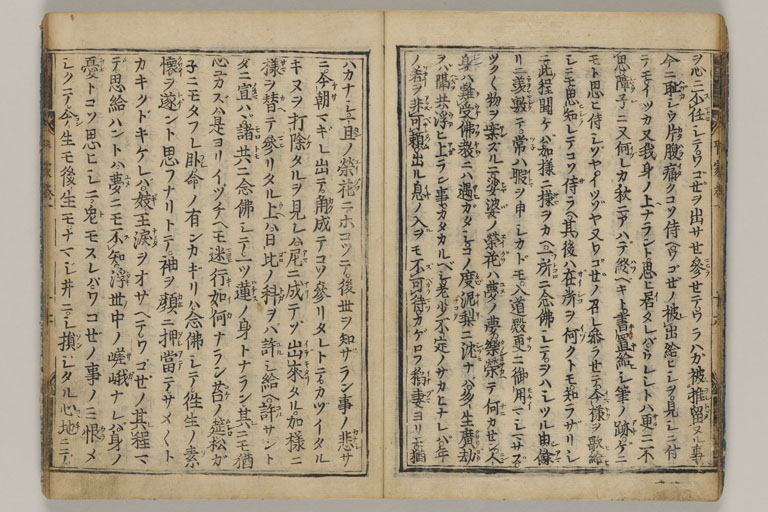 ヲ心ニ不任シテワゴゼヲ出サセ參セテワラハガ被推留ヌル事
今ニ耻シウ片腹痛クコソ侍ヘワゴゼノ被出給ヒシヲ見シニ付
テモイツカ又我身ノ上ナラント思ヒ居タレバウレシトハ更ニ不
思障子ニ又何レカ秋ニアハデ終ベキト書置給シ筆ノ跡ゲニ
モト思ヒ侍シゾヤイツゾヤ又ワゴゼノ召レ參ラセテ今樣ヲ歌給
シニモ思知レテコソ侍ラヘ其後ハ在所ヲ何クトモ知ラザリシ
ニ此程聞ケバ加樣ニ樣ヲカヘ一所ニ念佛シテヲハシツル由餘
リニ羨敷テ常ハ暇ヲ申シカドモ入道殿更ニ御用ヒマシマサズ
ツク〳〵物ヲ案ズルニ娑婆ノ榮花ハ夢ノ夢樂榮テ何カセン人
身ハ難受佛敎ニハ遇ガタシコノ度泥梨ニ沈ナバ多生廣劫
ヲバ隔共浮ビ上ラン事カタカルベシ老少不定ノサカヒナレバ年
ノ若ヲ非可賴出ル息ノ入ヲモ不可待カゲロフ稻妻ヨリモ猶
ハカナシ一旦ノ榮花ニホコツテ後世ヲ知ザラン事ノ悲サ
ニ今朝マギレ出テ角成テコソ參リタレトテカヅイタル
キヌヲ打除タルヲ見レバ尼ニ成テゾ出來タル加樣ニ
樣ヲ替テ參リタル上ハ日比ノ科ヲバ許シ給ヘ許サント
ダニ宣ハヾ諸共ニ念佛シテ一ツ蓮ノ身トナラン其ニモ猶
心ユカズハ是ヨリイヅチヘモ迷行如何ナラン苔ノ莚松ガ
子ニモタフレ臥命ノ有ンカギリハ念佛シテ徃生ノ素
懷ヲ遂ント思フナリトテ袖ヲ顔ニ押當テサメ〴〵ト
カキクドキケレバ妓王淚ヲオサヘテワゴゼノ其程マ
デ思給ハントハ夢ニモ不知浮世中ノ嵯峨ナレバ身ノ
憂トコソ思ヒシニ兎モスレバワゴゼノ事ノミ恨メ
シクテ今生モ後生モナマジ井ニシ損ジタル心地ニテ